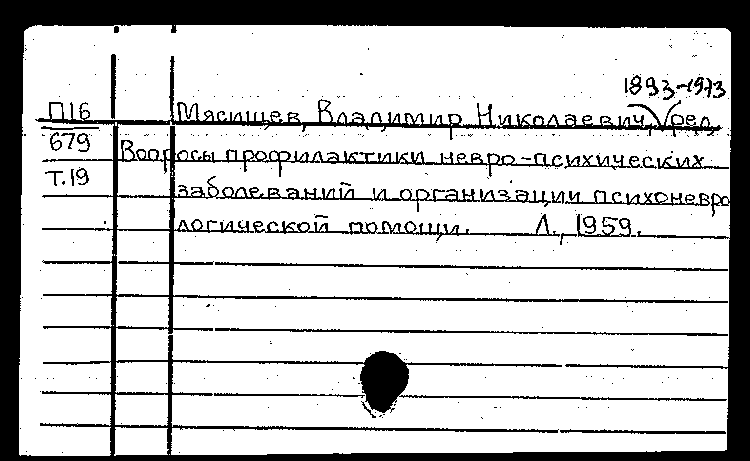 1893-1973
П16 Мясищев, Владимир Николаевич, ред.
679 Вопросы профилактики невро-психических
Т.19 заболеваний и организации психоневро
логической помощи. Л., 1959.